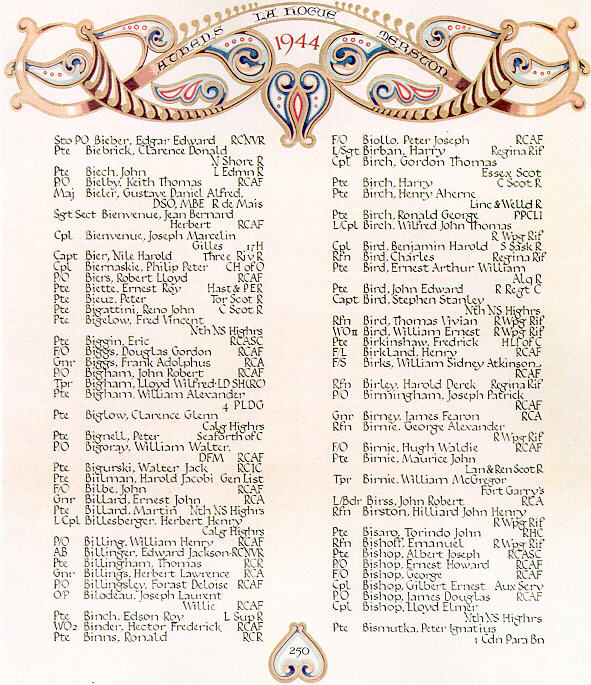 ATHENS LA HOGUE MERSTON
1944
Sto PO Bieber, Edgar Edward RCNVR
Pte Biebrick, Clarence Donald
N Shore R
Pte Biech, John L Edmn R
P/O Bielby, Keith Thomas RCAF
Maj Bieler, Gustave Daniel Alfred,
DSO, MBE R de Mais
Sgt Sect Bienvenue, Jean Bernard
Herbert RCAF
Cpl Bienvenue, Joseph Marcelin
Gilles 17H
Capt Bier, Nile Harold Three Riv R
Cpl Biernaskie, Philip Peter CH of O
P/O Biers, Robert Lloyd RCAF
Pte Biette, Ernest Roy Hast & PER
Pte Bieuz, Peter Tor Scot R
Pte Bigattini, Reno John C Scot R
Pte Bigelow, Fred Vincent
Nth NS Highrs
Pte Biggin, Eric RCASC
F/O Biggs, Douglas Gordon RCAF
Gnr Biggs, Frank Adolphus RCA
P/O Bigham, John Robert RCAF
Tpr Bigham, Lloyd Wilfred LD SH(RC)
Pte Bigham, William Alexander
4 PLDG
Pte Biglow, Clarence Glenn
Calg Highrs
Pte Bignell, Peter Seaforth of C
P/O Bigoray, William Walter,
DFM RCAF
Pte Bigurski, Walter Jack RCIC
Pte Biilman, Harold Jacobi Gen List
F/O Bilbe, John RCAF
Gnr Billard, Ernest John RCA
Pte Billard, Martin Nth NS Highrs
L Cpl Billesberger, Herbert Henry
Calg Highrs
P/O Billing, William Henry RCAF
AB Billinger, Edward Jackson RCNVR
Pte Billingham, Thomas RCR
Gnr Billings, Herbert Lawrence RCA
P/O Billingsley, Forast Deloise RCAF
OP Bilodeau, Joseph Laurent
Willie RCAF
Pte Binch, Edson Roy L Sup R
WO2 Binder, Hector Frederick RCAF
Pte Binns, Ronald RCR
F/O Biollo, Peter Joseph RCAF
L/Sgt Birban, Harry Regina Rif
Cpl Birch, Gordon Thomas
Essex Scot
Pte Birch, Harry C Scot R
Pte Birch, Henry Aherne
Linc & Welld R
Pte Birch, Ronald George PPCLI
L/Cpl Birch, Wilfred John Thomas
R Wpg Rif
Cpl Bird, Benjamin Harold S Sask R
Rfn Bird, Charles Regina Rif
Pte Bird, Ernest Arthur William
Alq R
Pte Bird, John Edward R Regt C
Capt Bird, Stephen Stanley
Nth NS Highrs
Rfn Bird, Thomas Vivian R Wpg Rif
WO II Bird, William Ernest R Wpg Rif
Pte Birkinshaw, Fredrick HLI of C
F/L Birkland, Henry RCAF
F/S Birks, William Sidney Atkinson
RCAF
Rfn Birley, Harold Derek Regina Rif
P/O Birmingham, Joseph Patrick
RCAF
Gnr Birney, James Fearon RCA
Rfn Birnie, George Alexander
R Wpg Rif
F/O Birnie, Hugh Waldie RCAF
Pte Birnie, Maurice John
Lan & Ren Scot R
Tpr Birnie, William McGregor
Fort Garry's
L/Bdr Birss, John Robert RCA
Rfn Birston, Hilliard John Henry
R Wpg Rif
Pte Bisaro, Torindo John RHC
Rfn Bishoff, Emanuel R Wpg Rif
Pte Bishop, Albert Joseph RCASC
P/O Bishop, Ernest Howard RCAF
F/O Bishop, George RCAF
Cpl Bishop, Gilbert Ernest Aux Serv
P/O Bishop, James Douglas RCAF
Cpl Bishop, Lloyd Elmer
Nth NS Highrs
Pte Bismutka, Peter Ignatius
1 Cdn Para Bn
250